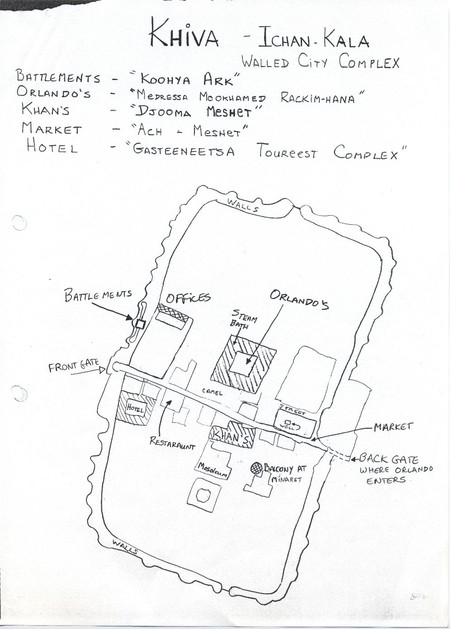 KHIVA - ICHAN-KALA
WALLED CITY COMPLEX
BATTLEMENTS - "KOOHYA ARK"
ORLANDO'S - "MEDRESSA MOOKHAMED RACKIM-HANA"
KHAN'S - "DJOOMA MESHET"
MARKET - "ACH - MESHET"
HOTEL - "GASTEENEETSA TOUREEST COMPLEX"
WALLS
BATTLEMENTS
OFFICES
ORLANDO'S
STEAM
BATH
FRONT GATE
CAMEL
HOTEL
STREET
RESTARAUNT
KHAN'S
MARKET
MOSOLEUM
BALCONY AT
MINARET
BACK GATE
WHERE ORLANDO
ENTERS
WALLS